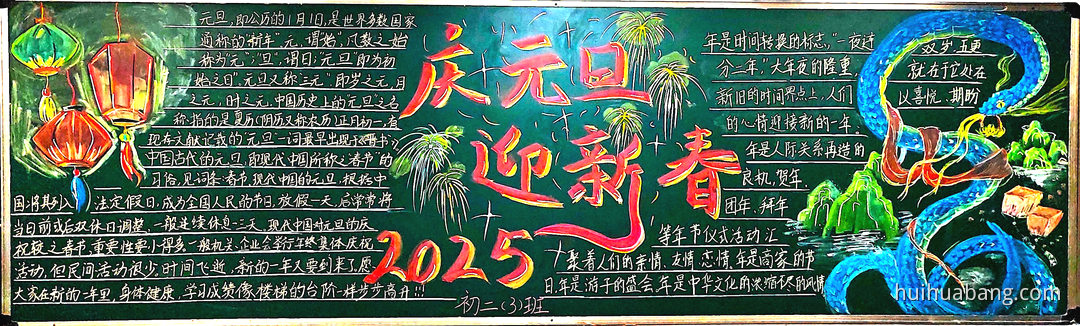 元旦,即公历的1月1日,是世界多数国家
通称的"新年"元,谓"始",凡数之始
称为"元";旦,谓"日;元旦"即为初
始之日"元旦又称"三元"即岁之元,月
之元,时之元,中国历史上的元旦之名
称,指的是夏历(阴历又称农历)正月初一有
现存文献记载的"元旦"一词最早出现于《晋书》
中国古代的元旦,即现代中国所称之春节"的
习俗,见词条春节.现代中国的元旦,根据中
国将其列入 法定假日,成为全国人民的节日,放假一天,后常常将
当日前或后双休日调整,一般连续休息三天,现代中国对元旦的庆
祝较之春节,重要性要小得多一般机关、企业会举行年终集体庆祝
活动,但民间活动很少;时间飞逝,新的一年又要到来了愿
大家在新的一年里,身体健康,学习成绩像楼梯的台阶一样步步高升!!!
庆元旦
迎新春
2025
初二(3)班
年是时间转换的标志,"一夜过 双岁,五更
分二年,"大年夜的隆重, 就在于它处在
新旧的时间界点上,人们 以喜悦、期盼
的心情迎接新的一年、
年是人际关系再造的
良机,贺年、
团年、拜年
等年节仪式活动汇
聚着人们的亲情、友情恋情,年是商家的节
日,年是游子的盛会,年是中华文化的浓缩不尽的风情
huihuabang.com